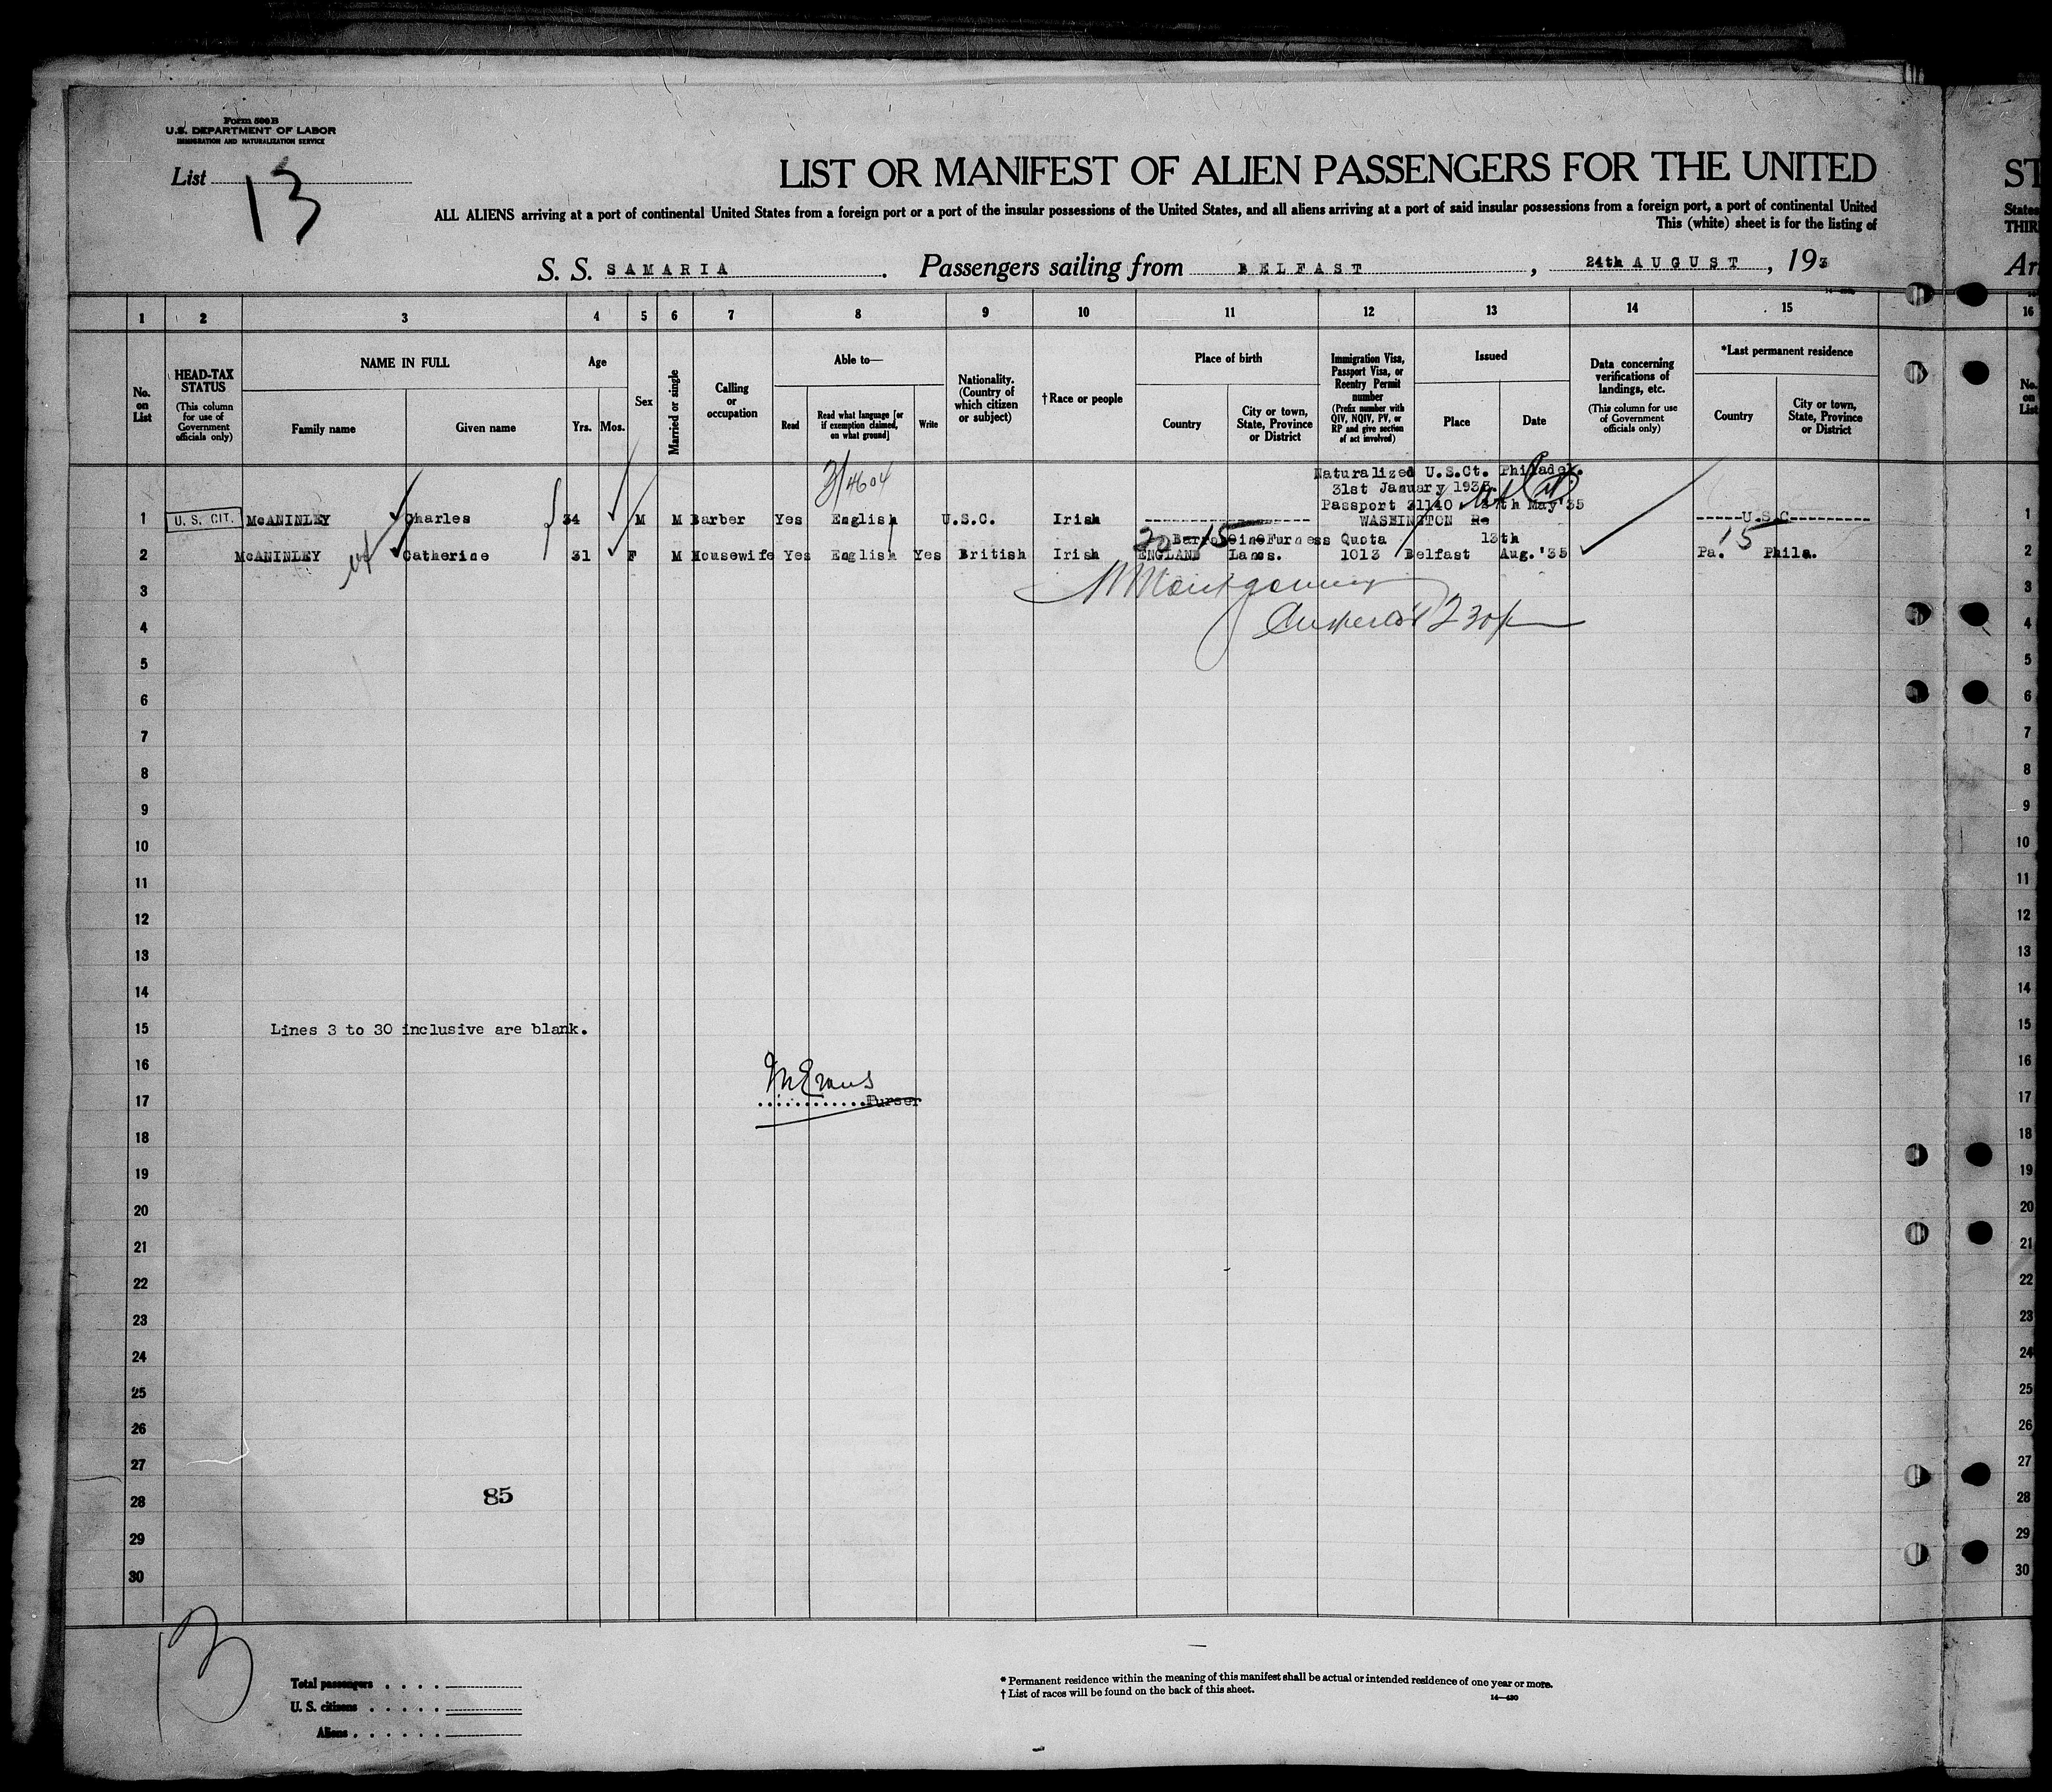 Form 500 B
U.S. DEPARTMENT OF LABOR
IMMIGRATION AND NATURALIZATION SERVICE
List 13
LIST OR MANIFEST OF ALIEN PASSENGERS FOR THE UNITED
ST
ALL ALIENS arriving at a port of continental United States from a foreign port or a port of the insular possessions of the United States, and all aliens arriving at a port of said insular possessions from a foreign port, a port of continental United
States
This (white) sheet is for the listing of
THIR
S. S. SAMARIA. Passengers sailing from BELFAST, 24th AUGUST, 193
Arr
1 2 3 4 5 6 7 8 9 10 11 12 13 14 15 16
No. on List
HEAD-TAX STATUS
(This column for use of Government officials only)
NAME IN FULL
Family name
Given name
Age
Yrs. Mos.
Sex
Married or single
Calling or occupation
Able to—
Read
Read what language [or if exemption claimed, on what ground]
Write
Nationality. (Country of which citizen or subject)
†Race or people
Place of birth
Country
City or town, State, Province or District
Immigration Visa, Passport Visa, or Reentry Permit number
(Prefix number with QIV, NQIV, PV, or RP and give section of act involved)
Issued
Place
Date
Data concerning verifications of landings, etc.
(This column for use of Government officials only)
*Last permanent residence
Country
City or town, State, Province or District
No. on List
3/4604
Naturalized U.S.Ct. Philadel.
31st January
Passport 21140 th May'35
1 U. S. CIT. McANINLEY Charles 34 M M Barber Yes English U.S.C. Irish WASHINGTON Re U.S.C 1
20 15 Furness Quota 13th 15
2 McANINLEY Catherine 31 F M Housewife Yes English Yes British Irish ENGLAND Lancs. 1013 Belfast Aug.'35 Pa. Phila. 2
3 Montgomery 3
4 4
5 5
6 6
7 7
8 8
9 9
10 10
11 11
12 12
13 13
14 14
15 Lines 3 to 30 inclusive are blank. 15
16 16
17 Purser 17
18 18
19 19
20 20
21 21
22 22
23 23
24 24
25 25
26 26
27 27
28 85 28
29 29
30 30
13
Total passengers
U. S. citizens
Aliens
* Permanent residence within the meaning of this manifest shall be actual or intended residence of one year or more.
† List of races will be found on the back of this sheet.
14—430